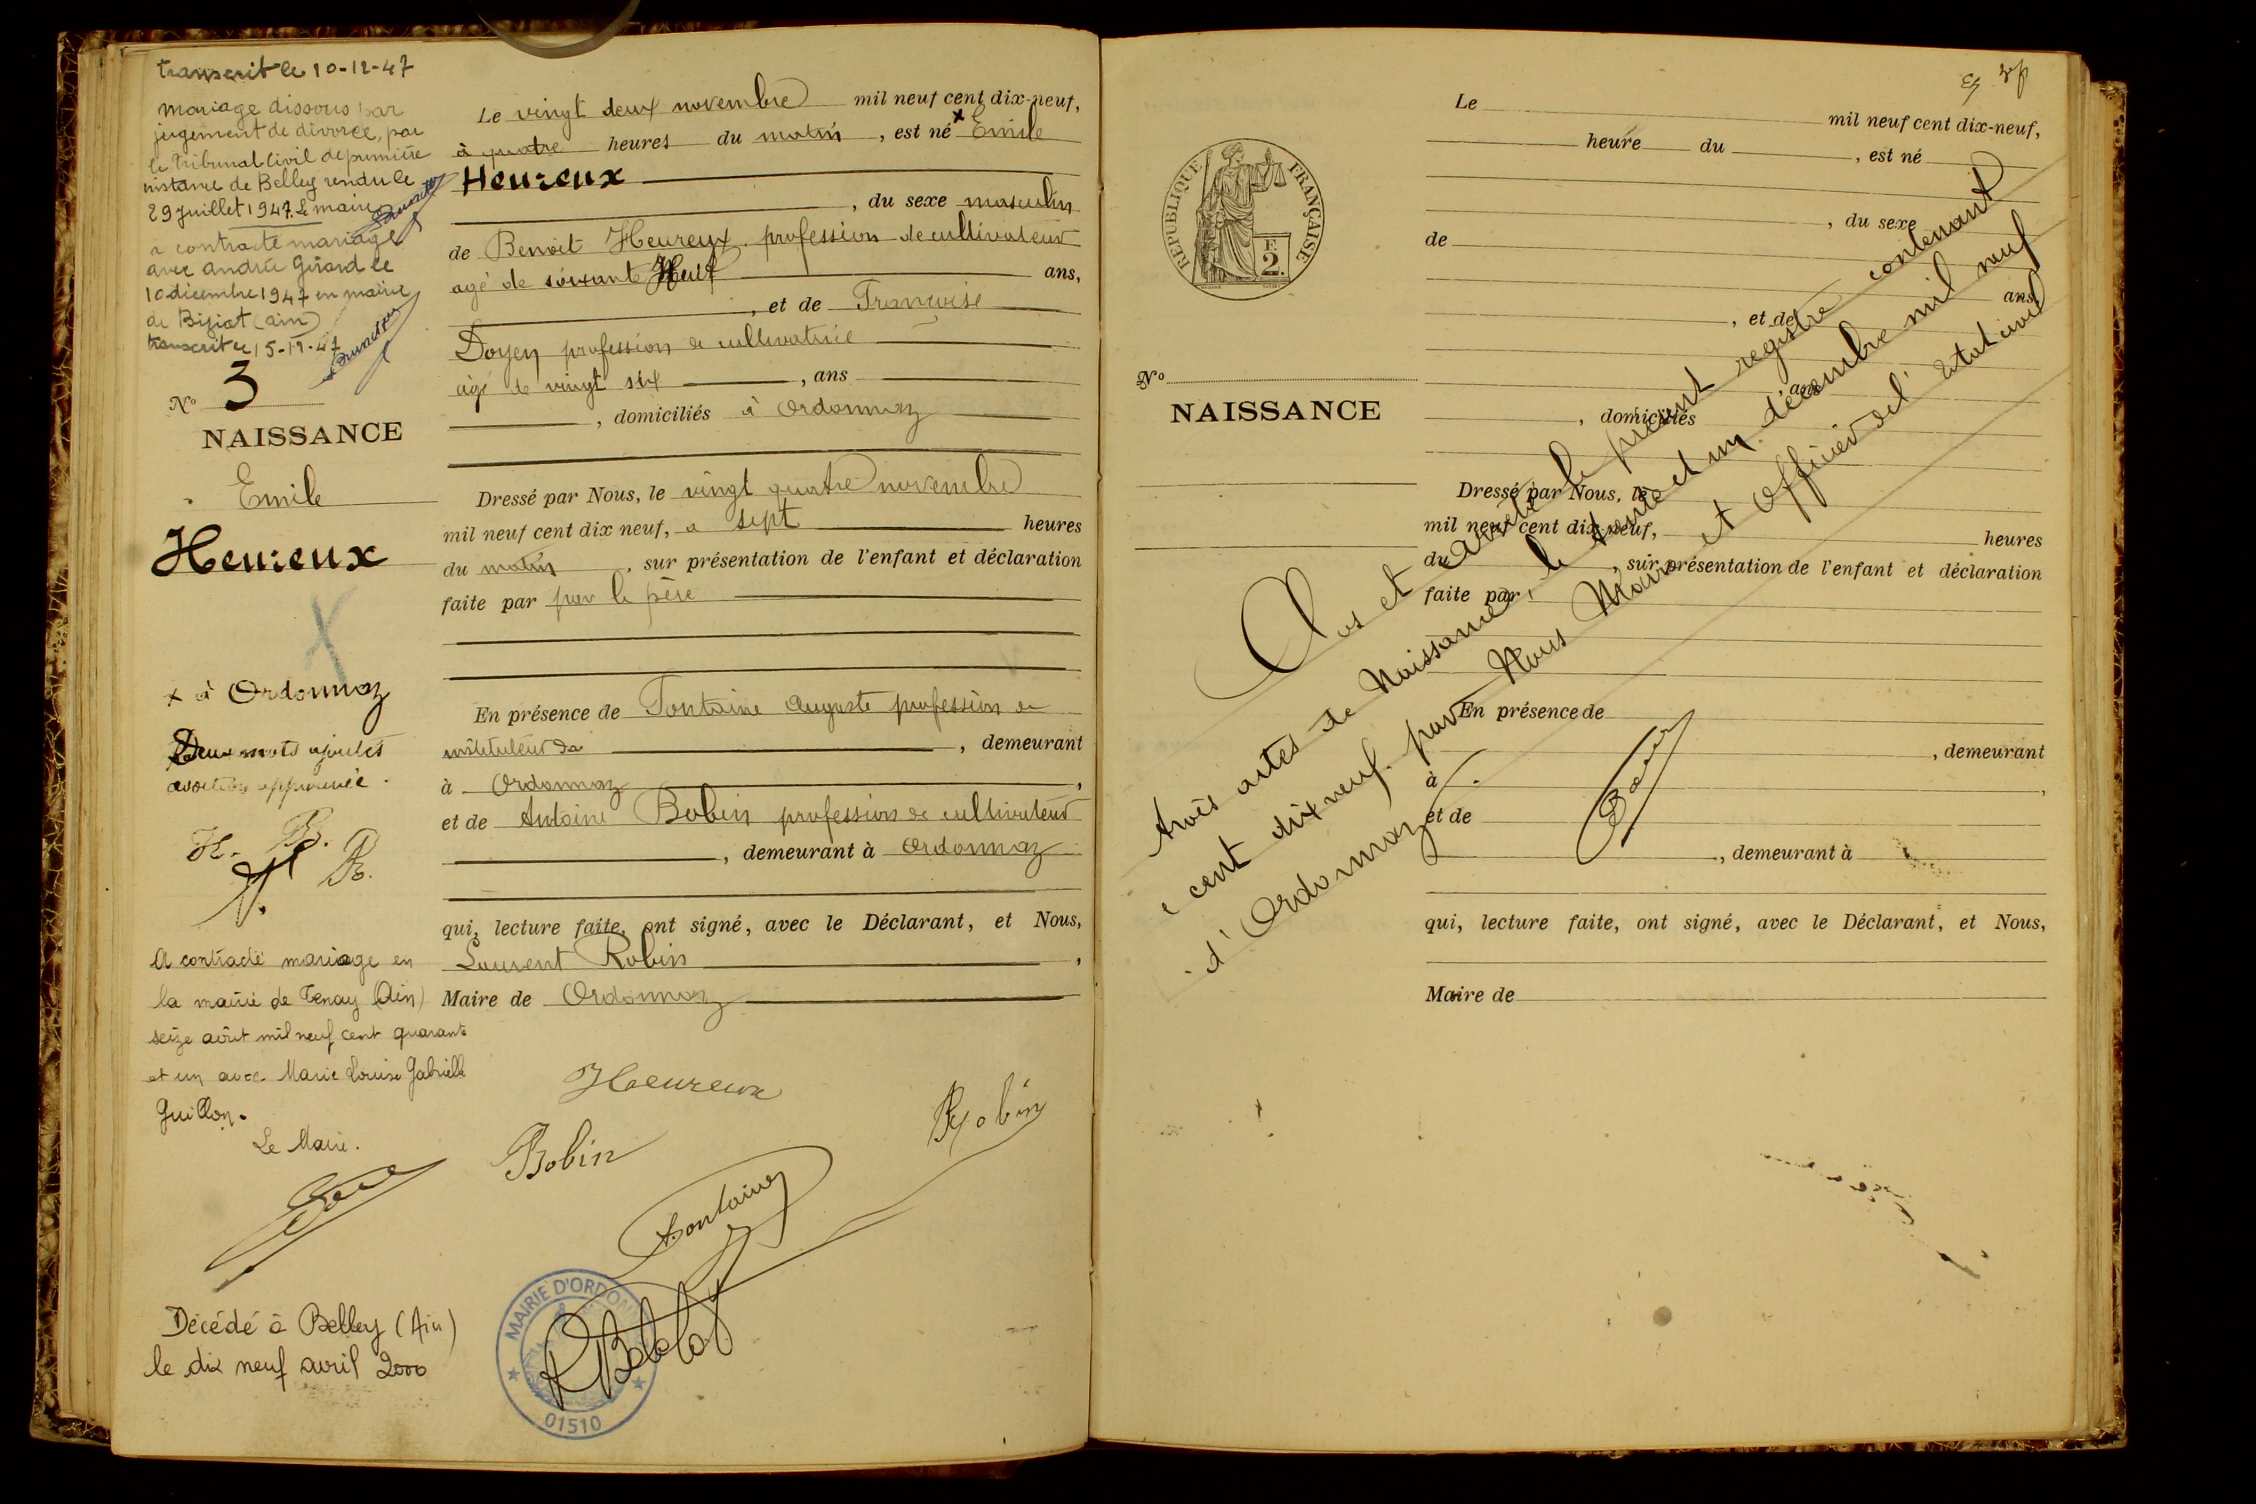 transcrit le 10-12-47
mariage dissous par
jugement de divorce, par
le tribunal civil de première
instance de Belley rendu le
29 juillet 1947. Le maire
a contracté mariage
avec andrée Girard le
10 décembre 1947 en mairie
de (ain)
transcrit le 15-12-47
N° 3
NAISSANCE
Emile
Heureux
x à Ordonnaz
Deux mots ajoutés
approuvée.
H. B.
R.
A contracté mariage en
la mairie de Tenay (Ain)
seize août mil neuf cent quarante
et un avec Marie Louise Gabrielle
Guillon.
Le Maire.
Décédé à Belley (Ain)
le dix neuf avril 2000
Le vingt deux novembre mil neuf cent dix-neuf,
à quatre heures du matin, est né x Emile
Heureux
, du sexe masculin
de Benoit Heureux profession de cultivateur
agé de soixante Neuf ans,
, et de Françoise
Doyen profession de cultivatrice
agé de vingt six, ans
, domiciliés à Ordonnaz
Dressé par Nous, le vingt quatre novembre
mil neuf cent dix neuf, a sept heures
du matin, sur présentation de l'enfant et déclaration
faite par par le père
En présence de Fontaine Auguste profession de
instituteur, demeurant
à Ordonnaz,
et de Antoine Bobin profession de cultivateur
, demeurant à Ordonnaz
qui, lecture faite, ont signé, avec le Déclarant, et Nous,
Laurent Robin,
Maire de Ordonnaz
Heureux
Bobin
Robin
Fontaine
MAIRIE D'ORDON
01510
Le mil neuf cent dix-neuf,
heure du, est né
, du sexe
de
ans,
, et de
ans
, domiciliés
Dressé par Nous, le
mil neuf cent dix-neuf, heures
du, sur présentation de l'enfant et déclaration
faite par
En présence de
, demeurant
à,
et de
, demeurant à
qui, lecture faite, ont signé, avec le Déclarant, et Nous,
Maire de
RÉPUBLIQUE FRANÇAISE
F.
2.
N°
NAISSANCE
Clos et arrêté le présent registre contenant
trois actes de Naissance, le trente et un décembre mil neuf
cent dix neuf par Nous Maire et Officier de l'Etat civil
d'Ordonnaz